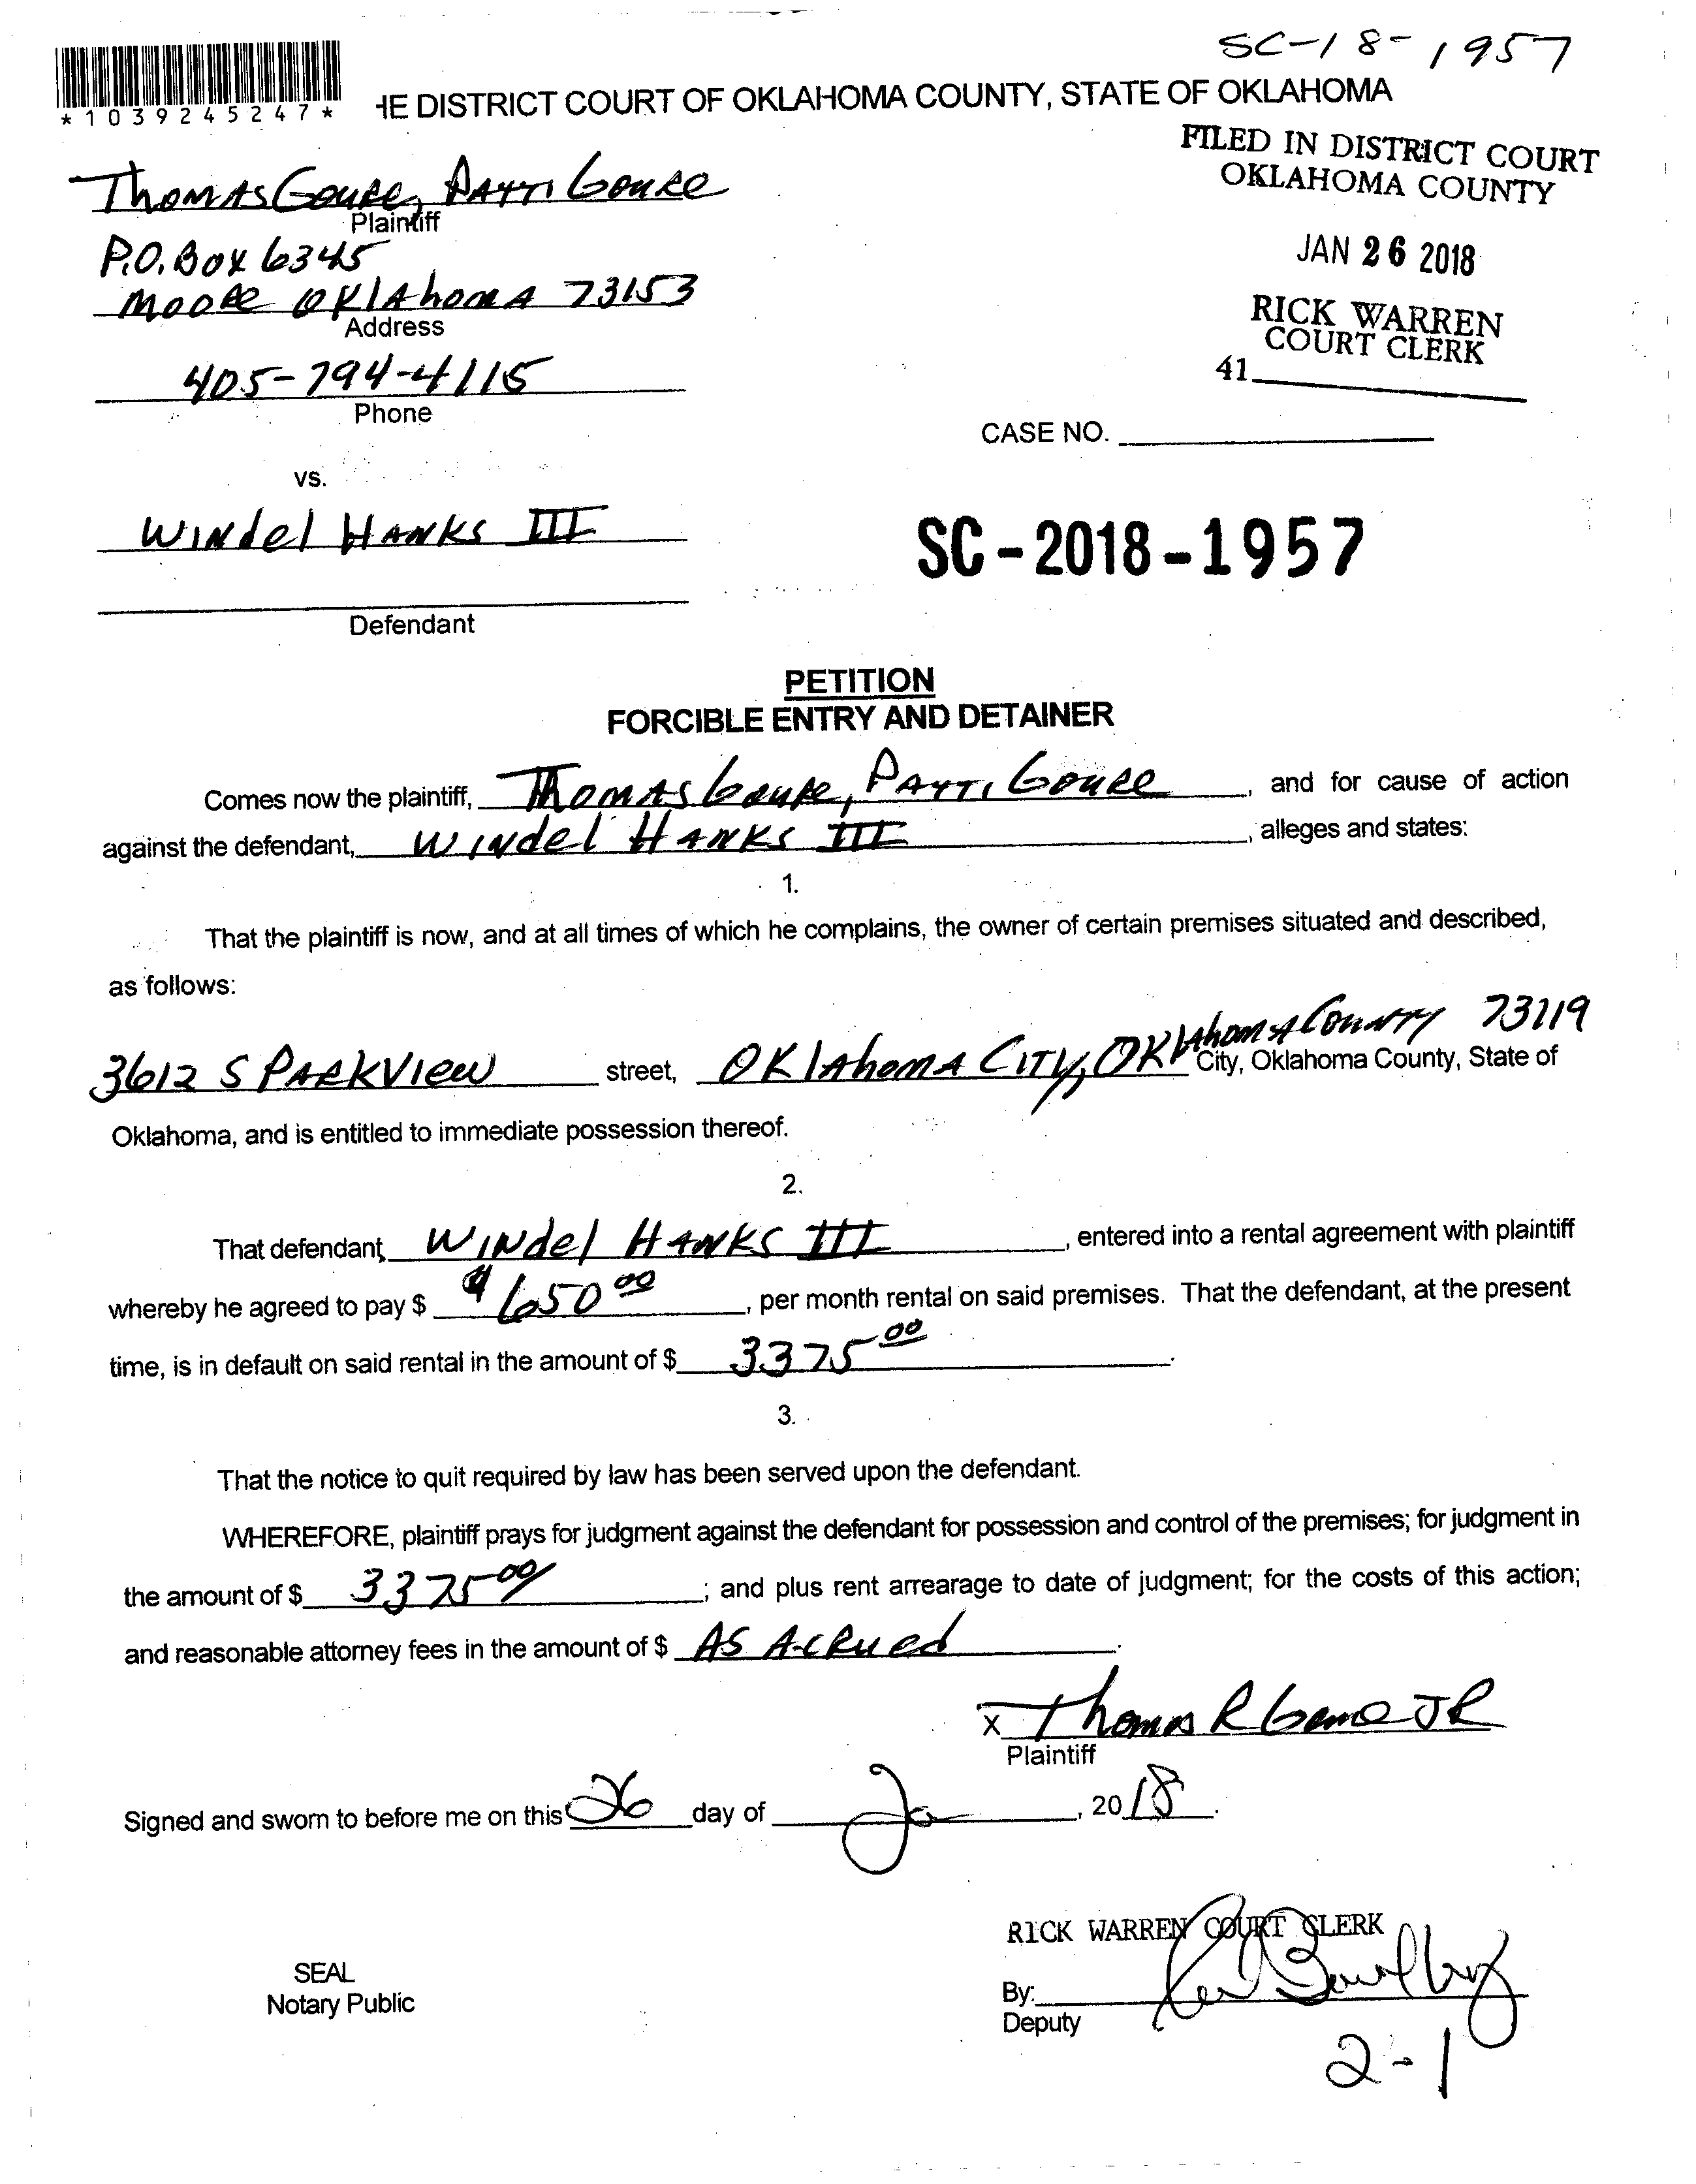 SC-18-1957
*1039245247*
HE DISTRICT COURT OF OKLAHOMA COUNTY, STATE OF OKLAHOMA
FILED IN DISTRICT COURT
OKLAHOMA COUNTY
JAN 26 2018
RICK WARREN
COURT CLERK
41
Thomas Goure, Patti Goure
Plaintiff
P.O. Box 6345
Moore Oklahoma 73153
Address
405-794-4115
Phone
CASE NO.
vs.
Windel Hanks III
SC-2018-1957
Defendant
PETITION
FORCIBLE ENTRY AND DETAINER
Comes now the plaintiff, Thomas Goure, Patti Goure, and for cause of action
against the defendant, Windel Hanks III, alleges and states:
1.
That the plaintiff is now, and at all times of which he complains, the owner of certain premises situated and described,
as follows:
3612 S Parkview street, Oklahoma City, Oklahoma County 73119 City, Oklahoma County, State of
Oklahoma, and is entitled to immediate possession thereof.
2.
That defendant, Windel Hanks III, entered into a rental agreement with plaintiff
whereby he agreed to pay $ $650.00, per month rental on said premises. That the defendant, at the present
time, is in default on said rental in the amount of $ 3375.00.
3.
That the notice to quit required by law has been served upon the defendant.
WHEREFORE, plaintiff prays for judgment against the defendant for possession and control of the premises; for judgment in
the amount of $ 3375.00; and plus rent arrearage to date of judgment; for the costs of this action;
and reasonable attorney fees in the amount of $ As Acrued.
X Thomas R Goure JR
Plaintiff
Signed and sworn to before me on this 26 day of Ja, 2018.
RICK WARREN COURT CLERK
SEAL
Notary Public
By:
Deputy
2-1